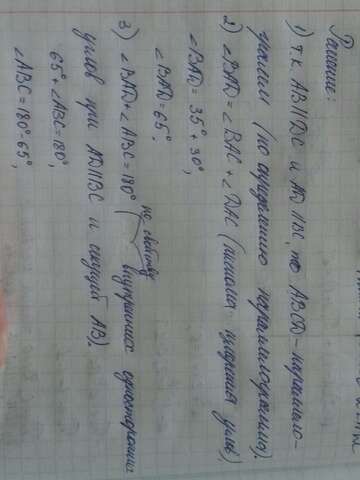 Решение:
1) т.к. AB∥DC и AD∥BC, то ABCD - параллело-
грамм (по определению параллелограмма).
2) ∠BAD = ∠BAC + ∠DAC (аксиома измерения углов),
∠BAD = 35° + 30°,
∠BAD = 65°.
3) ∠BAD + ∠ABC = 180° (по свойству внутренних односторонних
углов при AD∥BC и секущей AB).
65° + ∠ABC = 180°,
∠ABC = 180° - 65°,